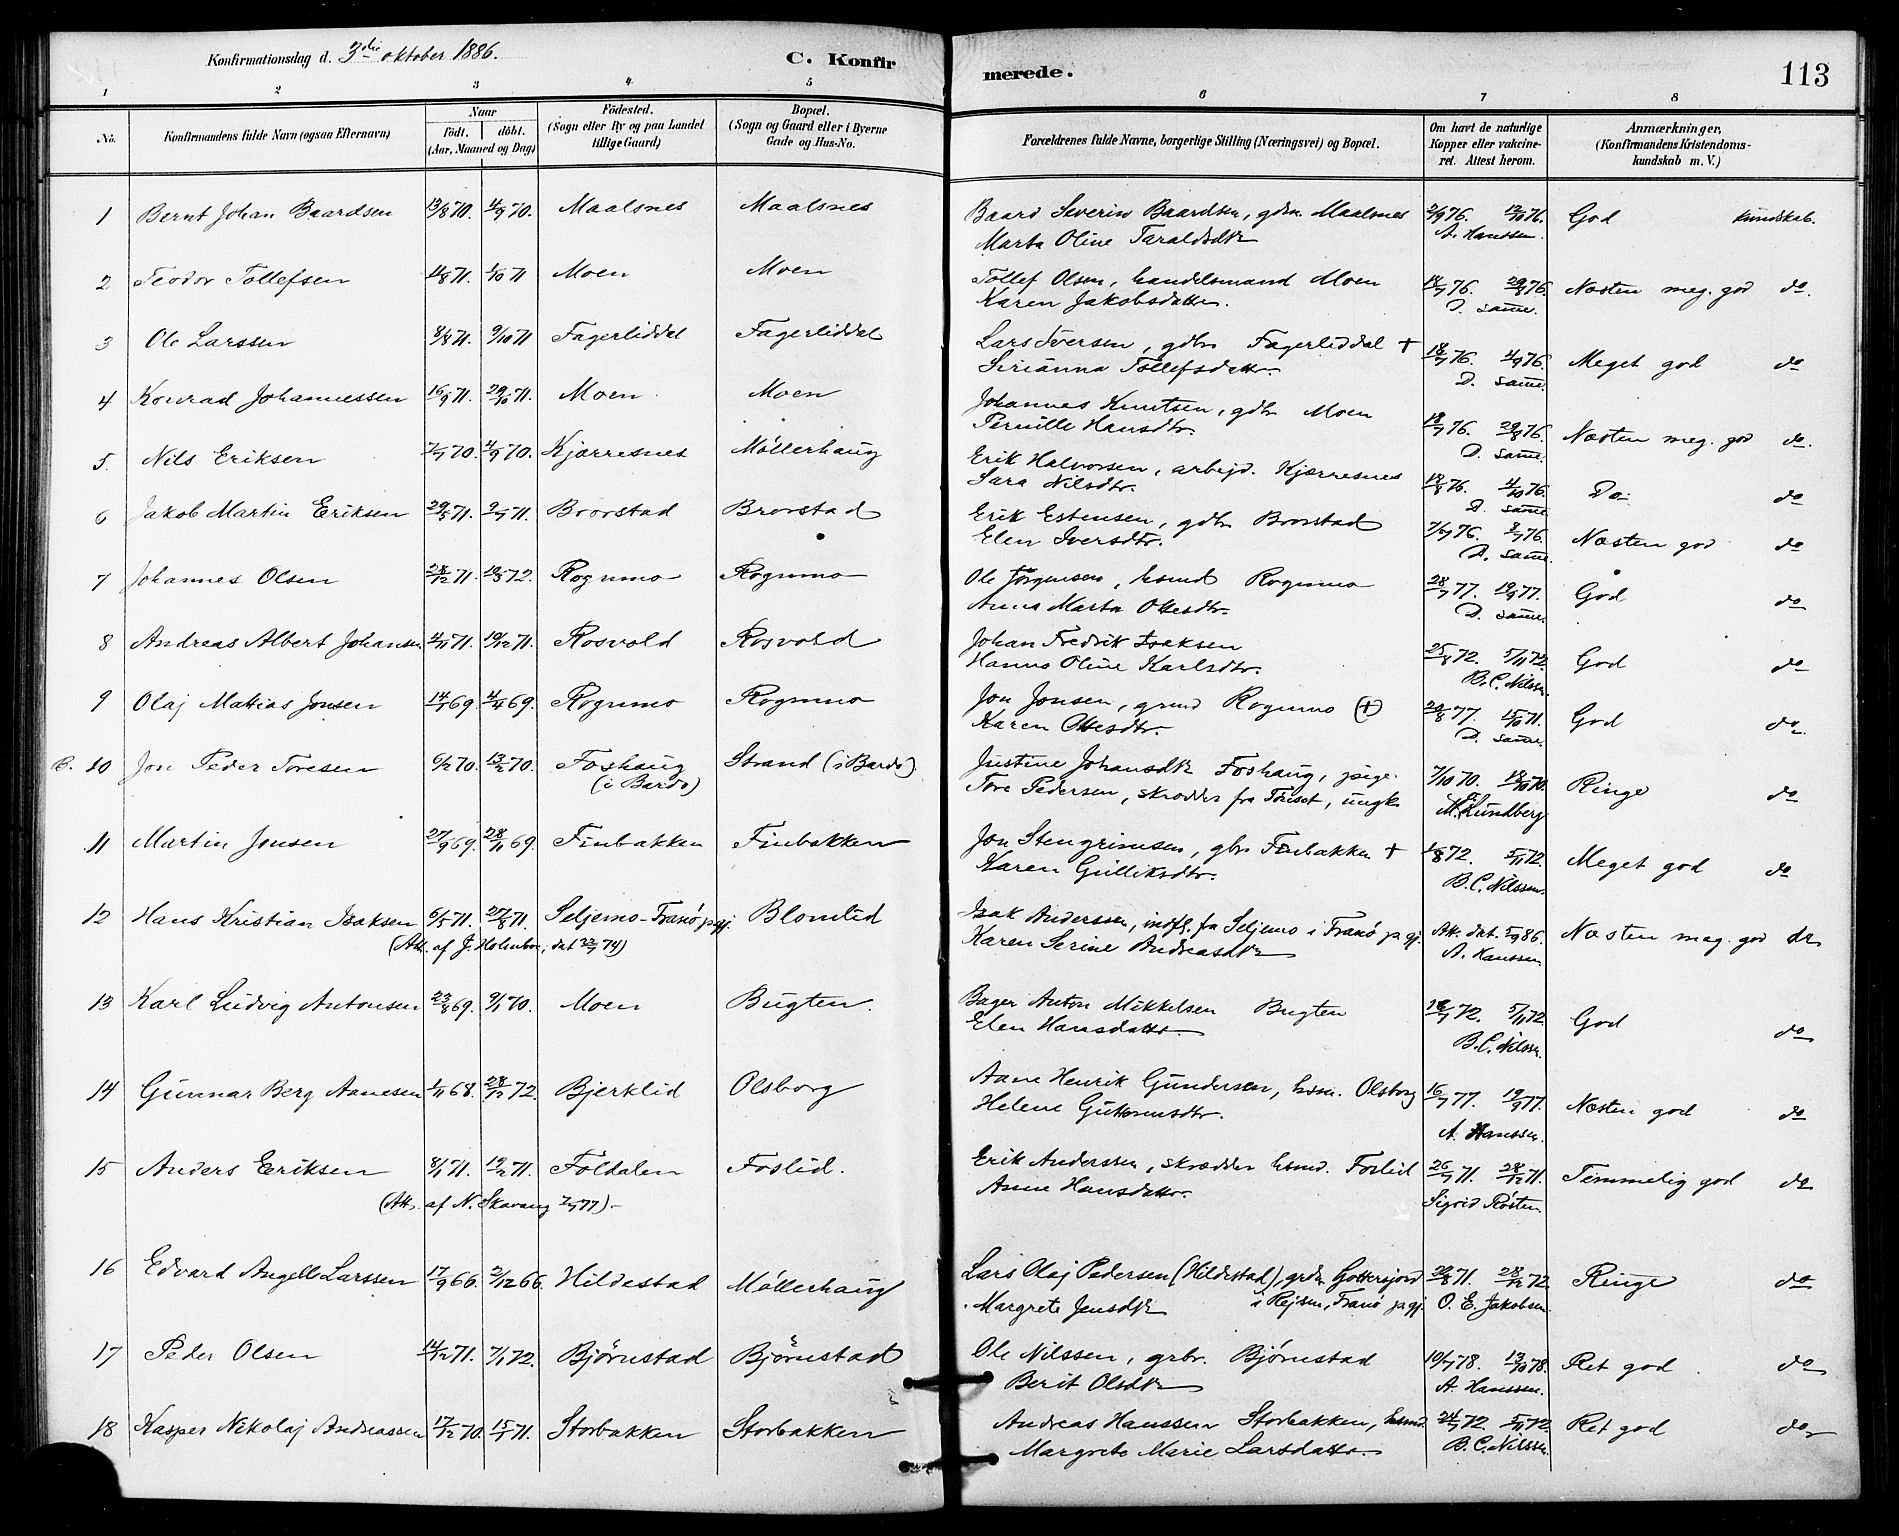 Konfirmationsdag d. 3die oktober 1886.
C. Konfirmerede.
113
1 2 3 4 5 6 7 8
No.
Konfirmandens fulde Navn (ogsaa Efternavn)
Naar
födt. döbt.
(Aar, Maaned og Dag)
Födested.
(Sogn eller By og paa Landet
tillige Gaard)
Bopæl.
(Sogn og Gaard eller i Byerne
Gade og Hus-No.
Forældrenes fulde Navne, borgerlige Stilling (Næringsvei) og Bopæl.
Om havt de naturlige
Kopper eller vakcineret. Attest herom.
Anmærkninger,
(Konfirmandens Kristendomskundskab m. V.)
1 Bernt Johan Baardsen 13/8 70. 4/9 70. Maalsnes Maalsnes Baard Severin Baardsen, gdbr. Maalsnes 2/9 76. 12/10 76. God kundskab.
Marta Oline Taraldsdtr A. Hanssen.
2 Teodor Tollefsen 11/8 71. 1/10 71 Moen Moen Tollef Olsen, handelsmand Moen 18/7 76. 29/8 76. Næsten meg. god do.
Karen Jakobsdatter. D. samme.
3 Ole Larssen 8/8 71. 9/10 71 Fagerliddal Fagerliddal Lars Iversen, gdbr Fagerliddal + 18/7 76. 4/9 76. Meget god do
Sirianna Tollefsdatter. D. samme.
4 Konrad Johannessen 16/9 71. 29/10 71. Moen Moen Johannes Knutsen, gdbr Moen 18/7 76. 29/8 76. Næsten meg. god do.
Pernille Hansdtr. D. samme.
5. Nils Eriksen 7/7 70. 4/9 70. Kjærresnes Möllerhaug Erik Halvorsen, arbejd. Kjærresnes 18/8 76. 4/10 76. Do. do
Sara Nilsdtr. D. samme
6 Jakob Martin Eriksen 29/5 71. 2/7 71. Brorstad Brorstad Erik Estensen, gdbr Brorstad 7/6 76. 2/7 76. Næsten god do
Elen Iversdtr. D. samme.
7 Johannes Olsen 28/12 71. 12/5 72. Rognmo Rognmo Ole Jörgensen, husmd Rognmo 28/7 77. 19/9 77. God do
Anna Marta Ottesdtr. D. samme.
8 Andreas Albert Johansen 4/11 71. 10/12 71. Rosvold Rosvold Johan Fredrik Isaksen 25/8 72. 5/11 72. God do
Hanna Oline Karlsdtr. B.C. Nilssen.
9 Olaj Matias Jonsen 14/1 69. 4/4 69. Rognmo Rognmo Jon Jonsen, grmd Rognmo (+) 20/8 77. 15/10 71. God do.
Karen Ottesdtr. D. samme.
10 Jon Peder Toresen 6/2 70. 13/2 70. Foshaug Strand (i Bardo) Justine Johansdtr Foshaug, pige. 7/10 70. 18/10 70. Ringe do
(i Bardo) Tore Pedersen, skrædder fra Tönset, ungk. M. Lundberg
11 Martin Jonsen 27/9 69. 28/11 69. Finbakken Finbakken Jon Stengrimsen, gbr. Finbakken + 1/8 72. 5/11 72. Meget god do
Karen Gulliksdtr. B.C. Nilssen.
12 Hans Kristian Isaksen 6/5 71. 27/8 71. Seljemo - Tranö pgj. Blomlid Isak Anderssen, indfl. fra Seljemo i Tranö pgj. Att. dat. 5/9 86. Næsten meg. god do
(Att. af J. Holmboe, dat 22/7 74) Karen Serine Andreasdtr A. Hanssen.
13 Karl Ludvig Antonsen 23/8 69. 9/1 70. Moen Bugten. Bager Anton Mikkelsen Bugten 18/7 72. 5/11 72. God do
Elen Hansdatter. B.C. Nilssen.
14 Gunnar Berg Aanesen 1/11 68. 28/12 72. Bjerklid Olsborg Aane Henrik Gundersen, husm. Olsborg 16/7 77. 19/9 77. Næsten god do
Helene Guttormsdtr. A. Hanssen.
15 Anders Eriksen 8/1 71. 19/2 71. Foldalen Foslid. Erik Anderssen, skrædder husmd. Foslid 26/7 71. 28/12 71. Temmelig god do
(Att. af N. Skavaug 2/7 77). Anne Hansdatter. Sigrid Rösten
16 Edvard Angell Larssen 17/9 66. 2/12 66. Hildestad Möllerhaug Lars Olaj Pedersen (Hildestad), grdm. 20/8 71. 28/12 72. Ringe do
Margrete Jensdtr i Rejsen, Tranö pgj. O. E. Jakobsen.
17 Peder Olsen 14/12 71. 7/1 72. Björnstad Björnstad Ole Nilssen, grbr. Björnstad 10/7 78. 13/10 78. Ret god do
Berit Olsdtr A. Hanssen.
18 Kasper Nikolaj Andreassen 17/12 70. 15/1 71. Storbakken Storbakken Andreas Hanssen Storbakken, husmd 24/7 72. 5/11 72. Ret god do
Margrete Marie Larsdatter B.C. Nilssen.